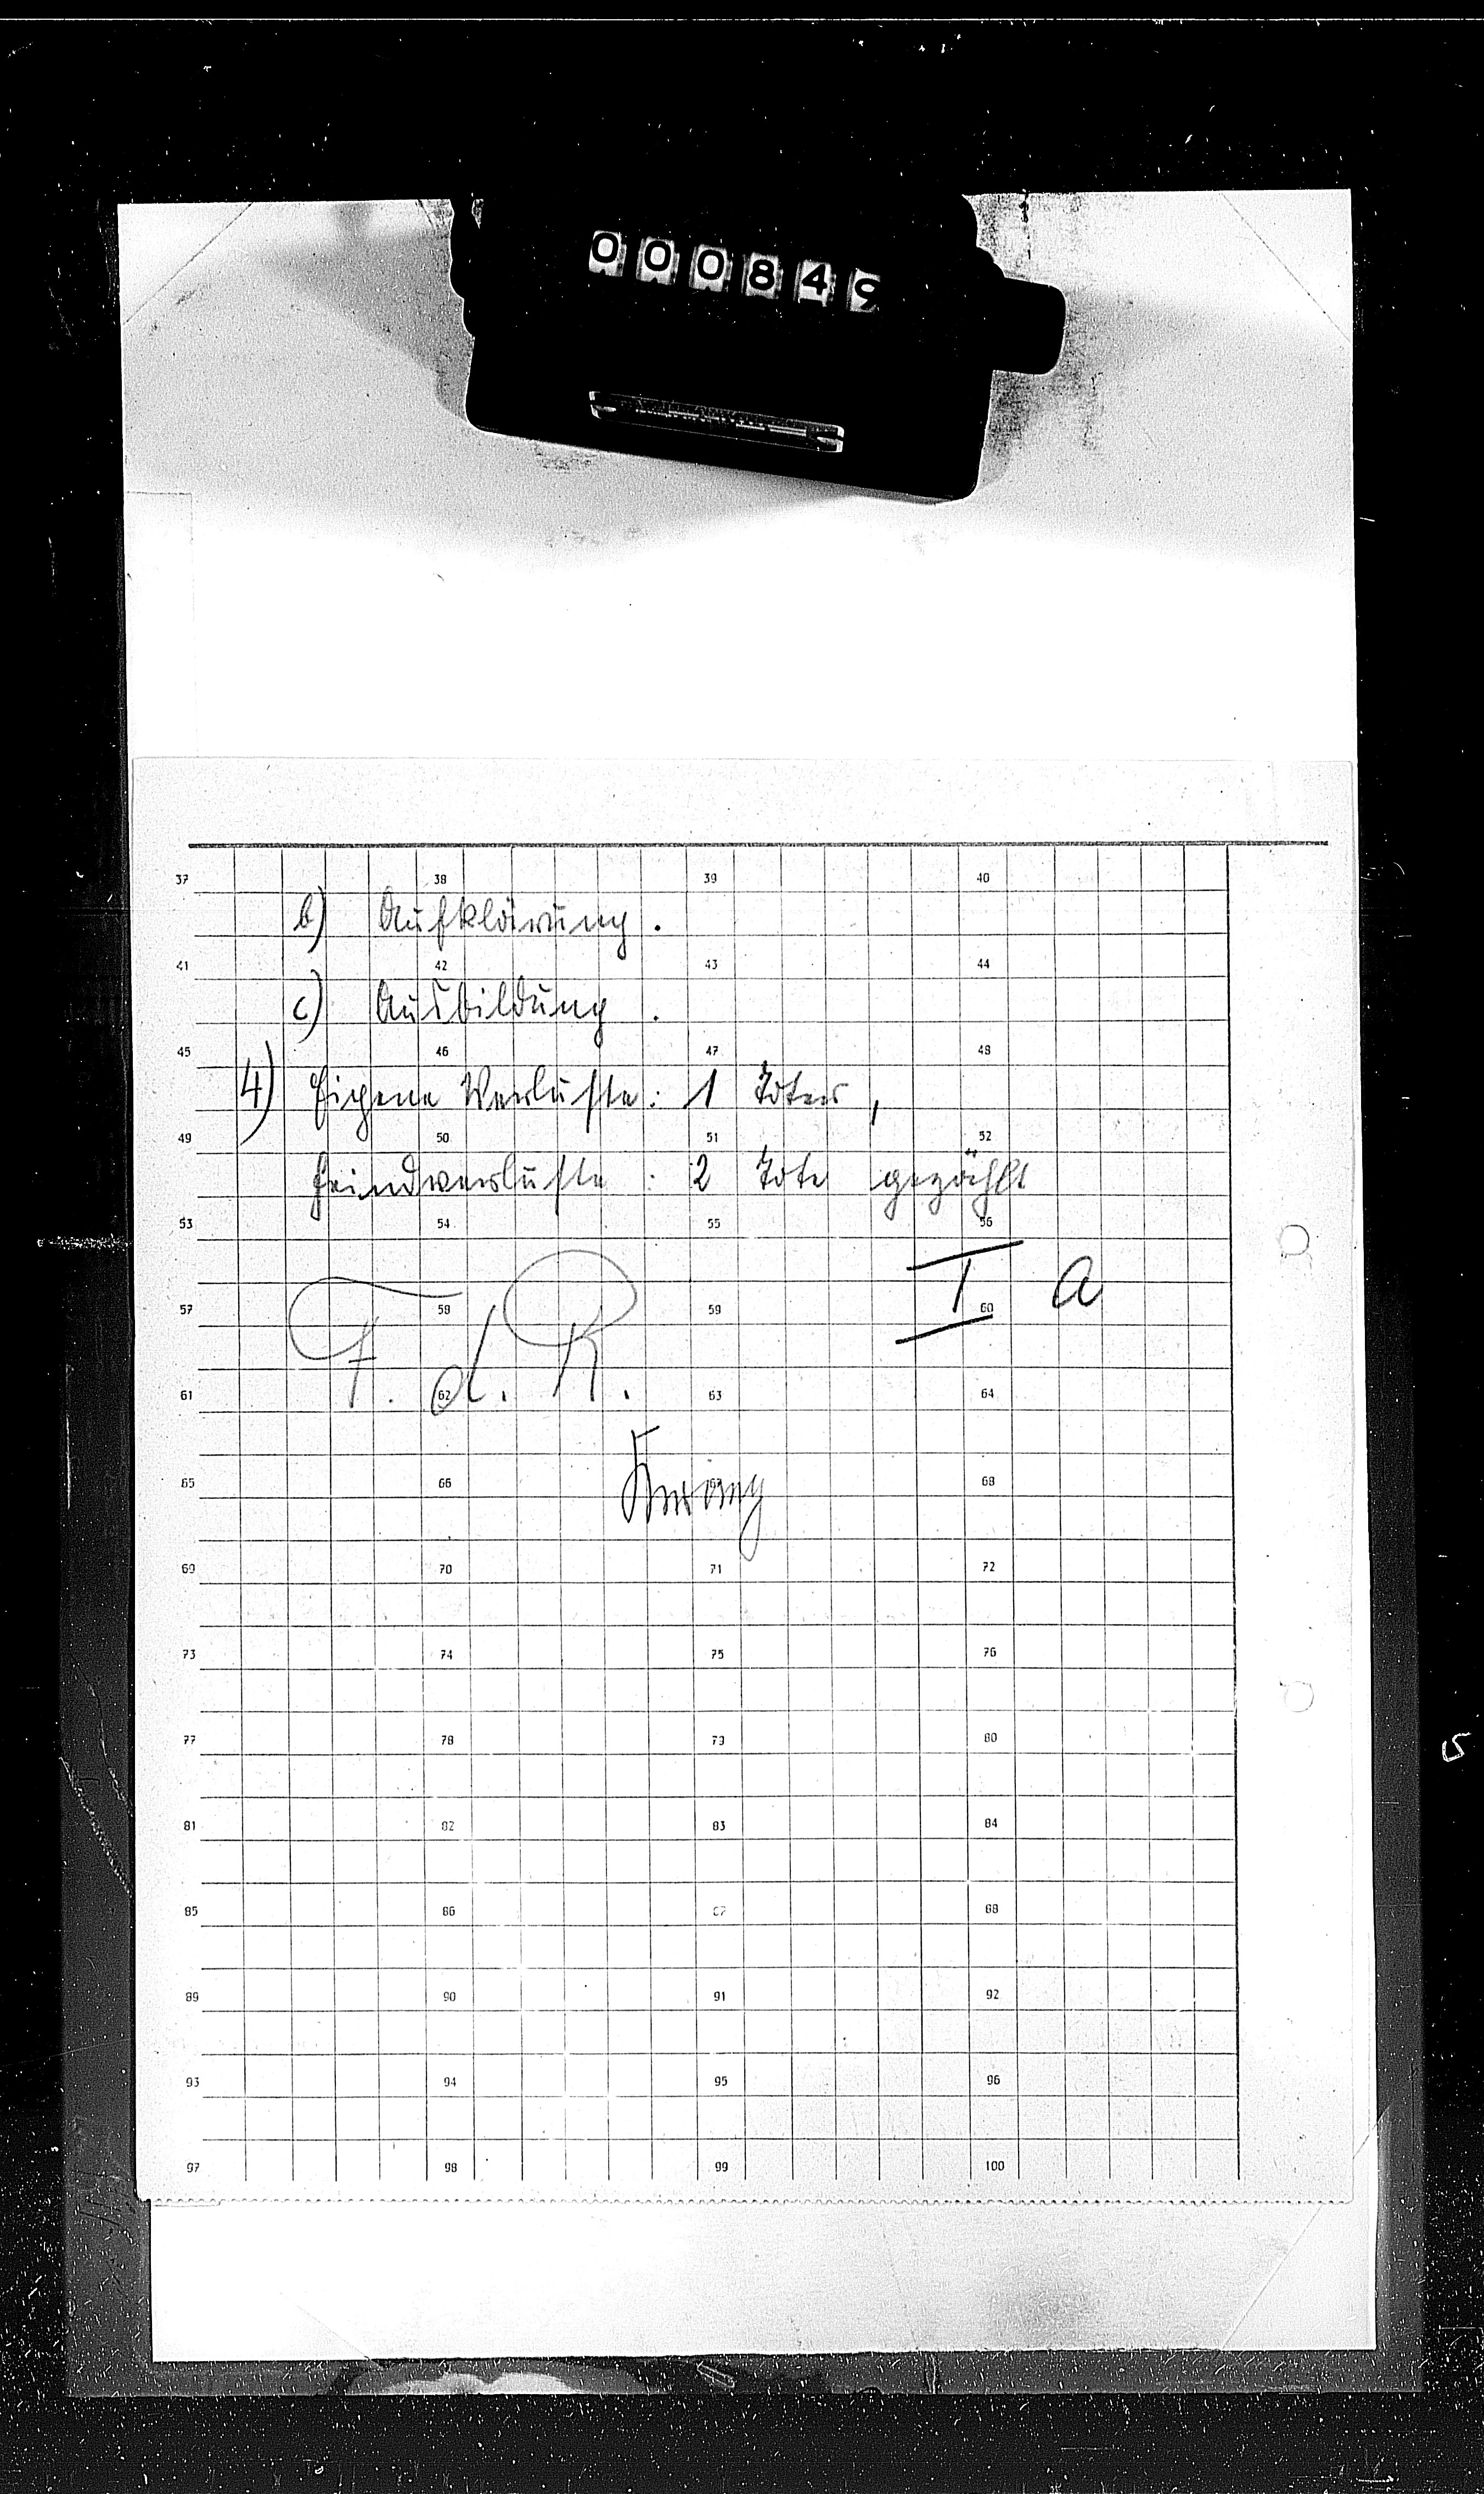 000849
37 38 39 40
b) Aufklärung.
41 42 43 44
c) Ausbildung.
45 46 47 48
4) Eigene Verluste: 1 Toter,
49 50 51 52
Feindverluste: 2 Tote gezählt
53 54 55 56
I a
57 58 59 60
F. d. R.
61 62 63 64
65 66 68
69 70 71 72
73 74 75 76
77 78 79 80
81 82 83 84
85 86 87 88
89 90 91 92
93 94 95 96
97 98 99 100